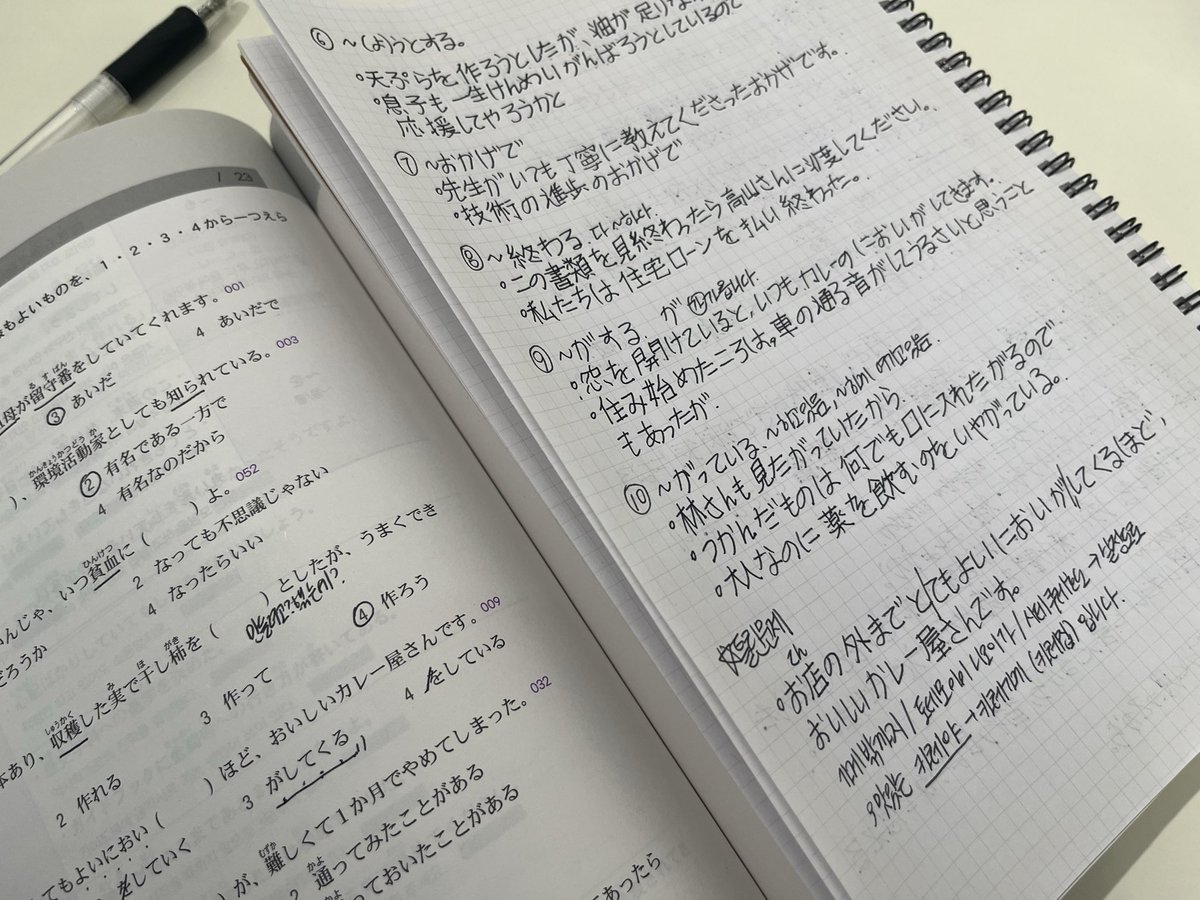 / 23
もよいものを、1・2・3・4から一つえら
母が留守番をしていてくれます。001
るすばん
③ あいだ
4 あいだで
)、環境活動家としても知られている。003
かんきょうかつどうか
② 有名である一方で
4 有名なのだから
んじゃ、いつ貧血に ( ) よ。052
ひんけつ
2 なっても不思議じゃない
だろうか
4 なったらいい
本あり、収穫した実で干し柿を ( ) としたが、うまくでき
しゅうかく み ほ がき
2 作れる
3 作って
④ 作ろう
てもよいにおい ( ) ほど、おいしいカレー屋さんです。009
をしていく
3 がしてくる
4 をしている
) が、難しくて1か月でやめてしまった。032
むずか
2 通ってみたことがある
かよ
っておいたことがある
かよ
てあったら
⑥ ~(よ)うとする。
•天ぷらを作ろうとしたが、油が足りな
•息子も一生けんめいがんばろうとしているので
応援してやろうかと
⑦ ~おかげで
•先生がいつも丁寧に教えてくださったおかげです。
•技術の進歩のおかげで
⑧ ~終わる. 다 ~하다.
•この書類を見終わったら高山さんに渡してください。
•私たちは住宅ローンを払い終わった。
⑨ ~がする. が
•窓を開けていると、いつもカレーのにおいがしてきます。
•住み始めたころは、車の通る音がしてうるさいと思うこと
もあったが
⑩ ~がっている.
•林さんも見たがっていたから
•つかんだものは何でも口に入れたがるので
•大人なのに薬を飲むのをいやがっている。
•お店の外までとてもよいにおいがしてくるほど、
てん
おいしいカレー屋さんです。
가게 밖까지 /
맛있는 카레야 → 카레가게 (카레집) 입니다.